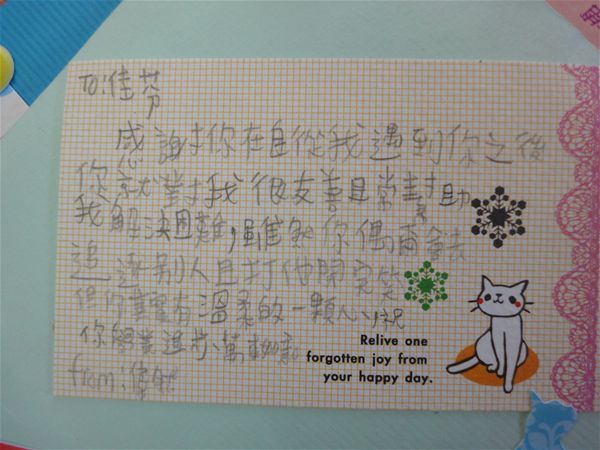 To:佳芬
感謝你在自從我遇到你之後
你就對我很友善且常幫助
我解決困難,雖然你偶爾會去
追逐別人且打他開玩笑
但你還是有溫柔的一顆心,祝
你學業進步、萬事如意
from:
Relive one
forgotten joy from
your happy day.